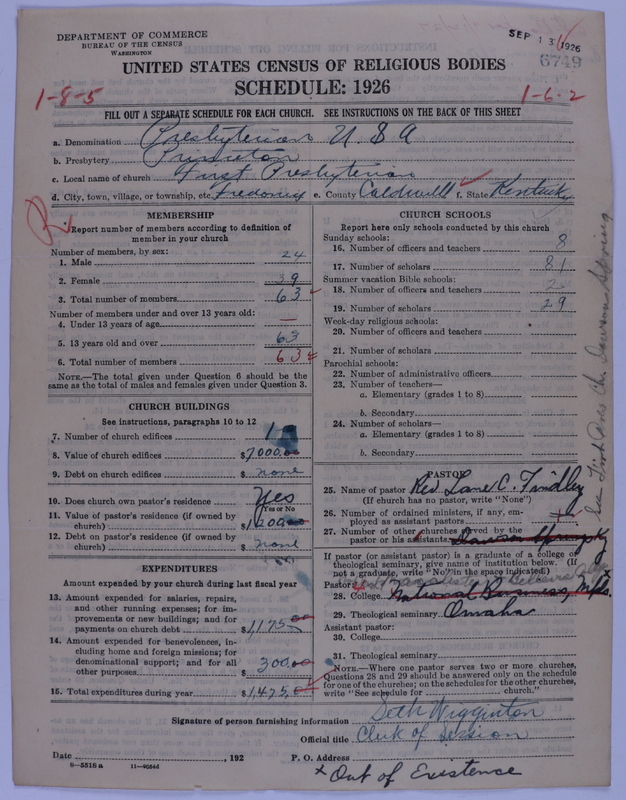 DEPARTMENT OF COMMERCE
BUREAU OF THE CENSUS
WASHINGTON
SEP 13 1926
6749
UNITED STATES CENSUS OF RELIGIOUS BODIES
SCHEDULE: 1926
1-8-5
1-6-2
FILL OUT A SEPARATE SCHEDULE FOR EACH CHURCH. SEE INSTRUCTIONS ON THE BACK OF THIS SHEET
a. Denomination Presbyterian U S A
b. Presbytery Princeton
c. Local name of church First Presbyterian
d. City, town, village, or township, etc. Fredonia e. County Caldwell f. State Kentucky
MEMBERSHIP
Report number of members according to definition of
member in your church
Number of members, by sex:
1. Male 24
2. Female 39
3. Total number of members 63
Number of members under and over 13 years old:
4. Under 13 years of age —
5. 13 years old and over 63
6. Total number of members 63
NOTE.—The total given under Question 6 should be the
same as the total of males and females given under Question 3.
CHURCH BUILDINGS
See instructions, paragraphs 10 to 12
7. Number of church edifices 1
8. Value of church edifices $7000.00
9. Debt on church edifices $ none
10. Does church own pastor's residence Yes
Yes or No
11. Value of pastor's residence (if owned by
church) $1200.00
12. Debt on pastor's residence (if owned by
church) $ none
EXPENDITURES
Amount expended by your church during last fiscal year
13. Amount expended for salaries, repairs,
and other running expenses; for im-
provements or new buildings; and for
payments on church debt $1175.00
14. Amount expended for benevolences, in-
cluding home and foreign missions; for
denominational support; and for all
other purposes $ 300.00
15. Total expenditures during year $1,475.00
CHURCH SCHOOLS
Report here only schools conducted by this church
Sunday schools:
16. Number of officers and teachers 8
17. Number of scholars 81
Summer vacation Bible schools:
18. Number of officers and teachers 2
19. Number of scholars 29
Week-day religious schools:
20. Number of officers and teachers
21. Number of scholars
Parochial schools:
22. Number of administrative officers
23. Number of teachers—
a. Elementary (grades 1 to 8)
b. Secondary
24. Number of scholars—
a. Elementary (grades 1 to 8)
b. Secondary
PASTOR
25. Name of pastor Rev. Lane C. Findley
(If church has no pastor, write "None")
26. Number of ordained ministers, if any, em-
ployed as assistant pastors
27. Number of other churches served by the
pastor or his assistants Dawson Springs Ky
If pastor (or assistant pastor) is a graduate of a college or
theological seminary, give name of institution below. (If
not a graduate, write "No" in the space indicated.)
Pastor: Bellevue
28. College National Business,
29. Theological seminary Omaha
Assistant pastor:
30. College
31. Theological seminary
NOTE.—Where one pastor serves two or more churches,
Questions 28 and 29 should be answered only on the schedule
for one of the churches; on the schedules for the other churches,
write "See schedule for church."
Signature of person furnishing information Seth Wigginton
Official title Clerk of Session
Date , 192 P. O. Address
8-5518 a 11-9064d
x Out of Existence